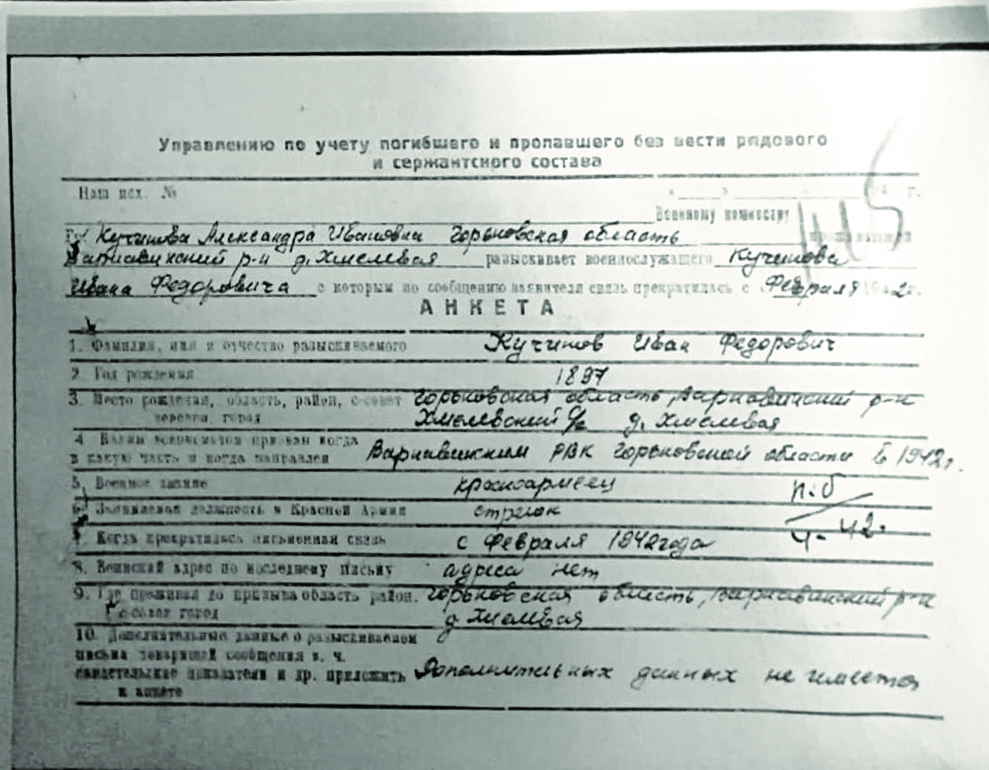 Управлению по учету погибшего и пропавшего без вести рядового
и сержантского состава
Наш исх. № г.
Военному комиссару
Гр. Кучинова Александра Ивановна Горьковская область
Варнавинский р-н д. Хмелевая разыскивает военнослужащего Кучинова
Ивана Федоровича с которым по сообщению заявителя связь прекратилась с Февраля 1942 г.
АНКЕТА
1. Фамилия, имя и отчество разыскиваемого Кучинов Иван Федорович
2. Год рождения 1897
3. Место рождения, область, район, с-совет Горьковская область, Варнавинский р-н
город Хмелевский с/с д. Хмелевая
4 Каким военкоматом призван когда
в какую часть и когда направлен Варнавинским РВК Горьковской области в 1942 г.
5. Военное звание красноармеец п.б
6. Занимаемая должность в Красной Армии стрелок
7. Когда прекратилась письменная связь с Февраля 1942 года 4-42.
8. Воинский адрес по последнему письму адреса нет
9. Где проживал до призыва область район. Горьковская область, Варнавинский р-н
с-совет город д Хмелевая
10. Дополнительные данные о разыскиваемом
письма товарищей сообщения в. ч.
свидетельские показатели и др. приложить Дополнительных данных не имеется
к анкете